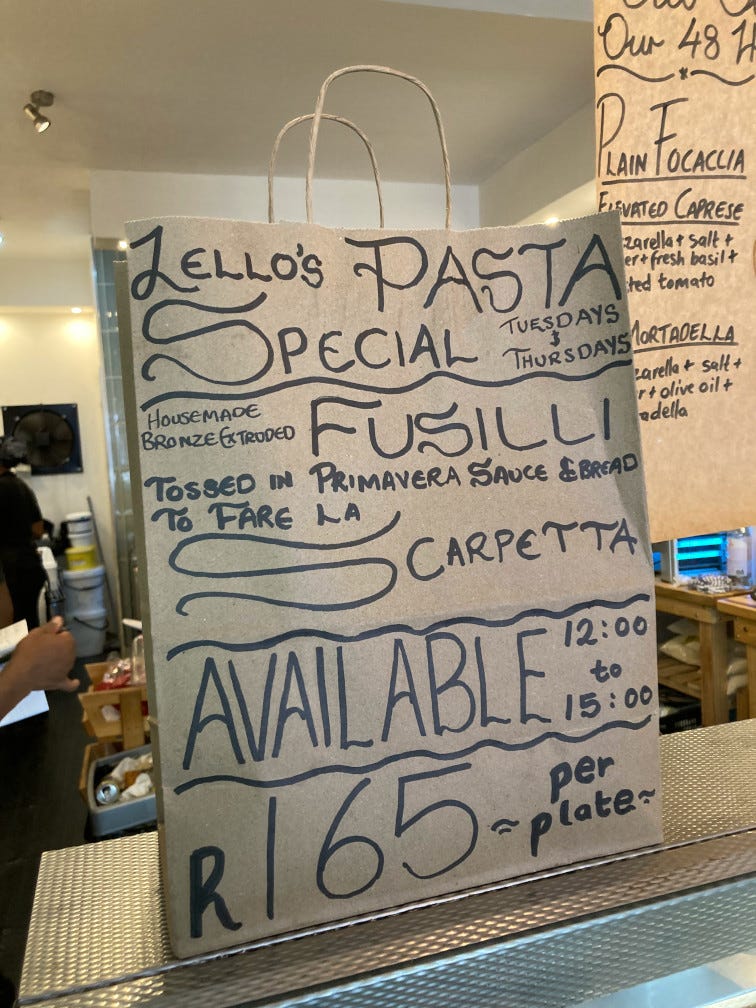 Lello's PASTA
SPECIAL TUESDAYS
&
THURSDAYS
HOUSEMADE
BRONZE EXTRUDED FUSILLI
TOSSED IN PRIMAVERA SAUCE & BREAD
TO FARE LA
SCARPETTA
AVAILABLE 12:00
to
15:00
R165 per
~ plate ~
Our 48
PLAIN FOCACCIA
ELEVATED CAPRESE
+ salt +
+ fresh basil +
tomato
MORTADELLA
+ salt +
+ olive oil +